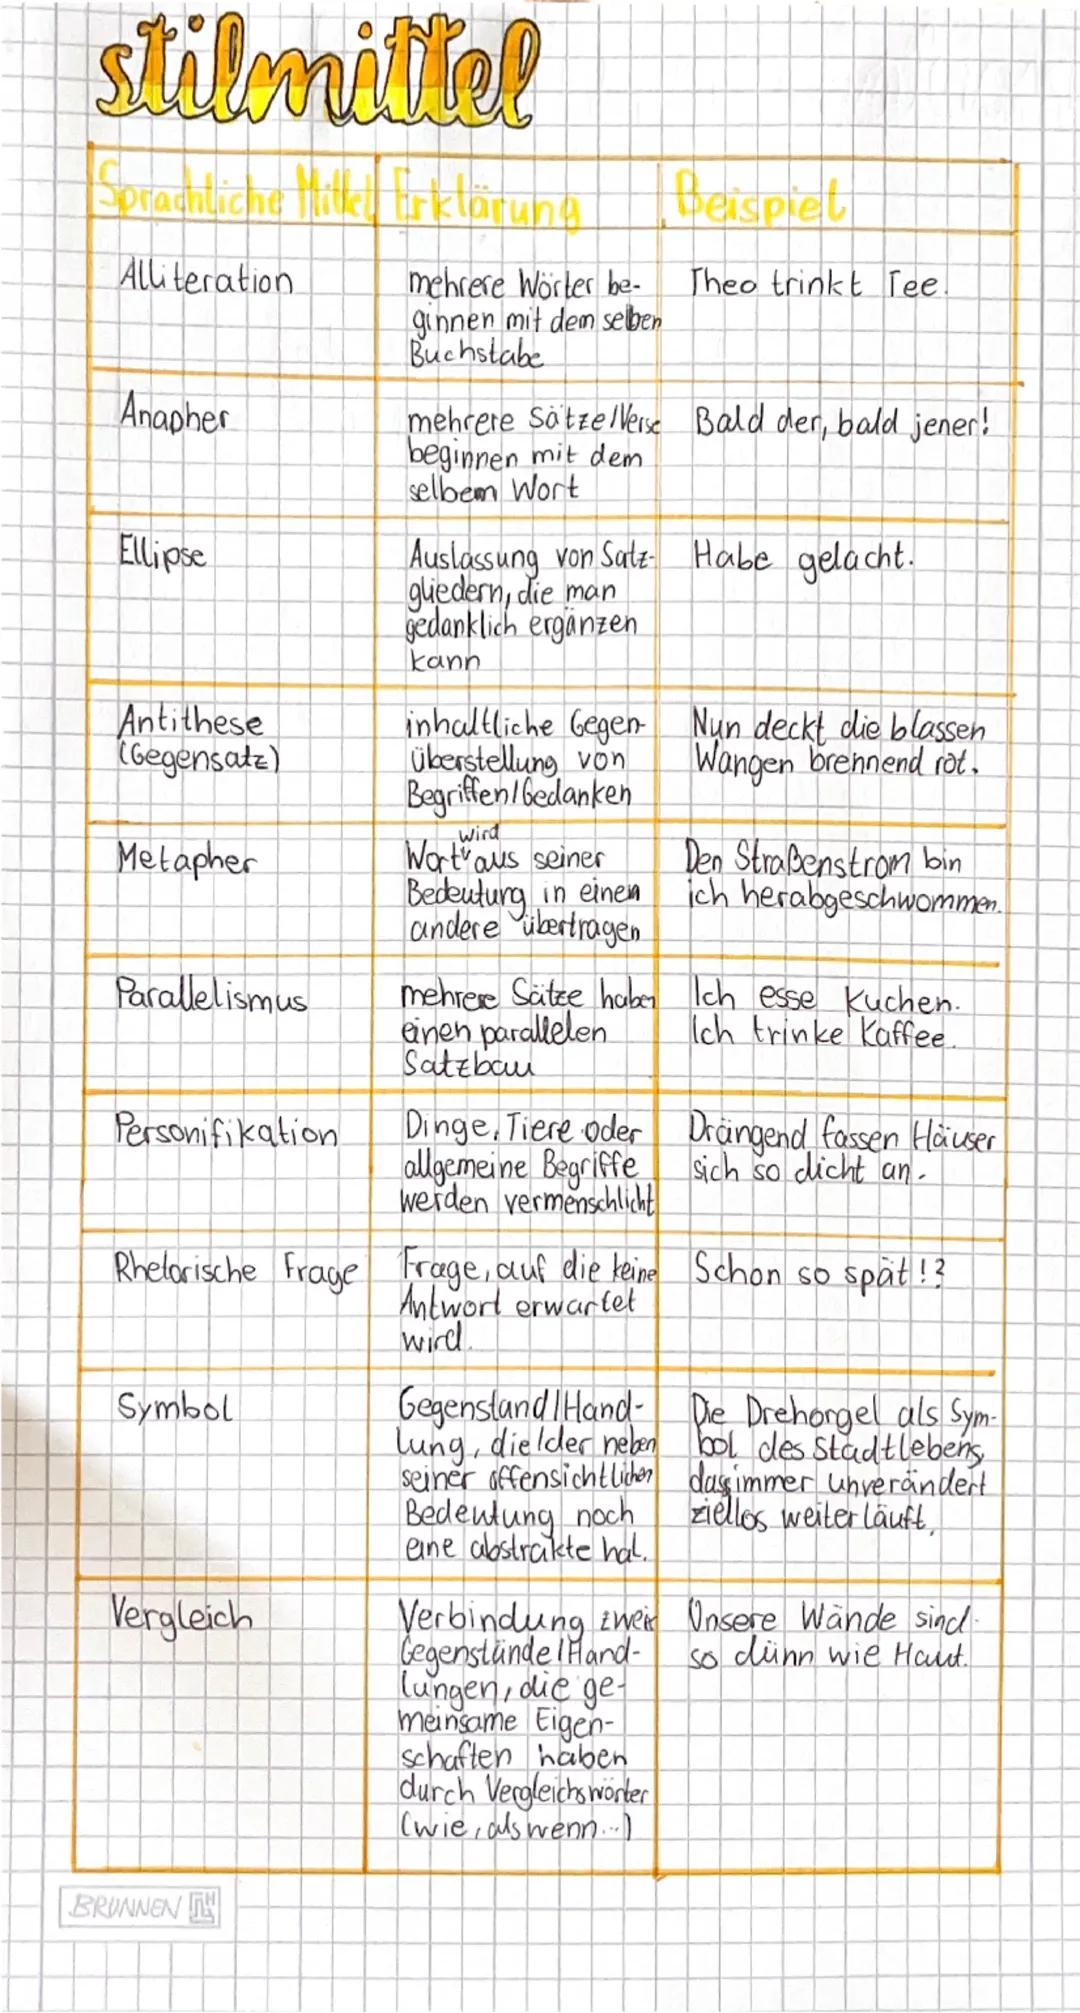 stilmittel
Sprachliche Mittel Erklärung Beispiel
Alliteration
mehrere Wörter be-
ginnen mit dem selben
Buchstabe
Theo trinkt Tee.
Anapher
mehrere Sätze/Verse
beginnen mit dem
selbem Wort
Bald der, bald jener!
Ellipse
Auslassung von Satz-
gliedern, die man
gedanklich ergänzen
kann
Habe gelacht.
Antithese
(Gegensatz)
inhaltliche Gegen-
überstellung von
Begriffen/Gedanken
Nun deckt die blassen
Wangen brennend rot.
Metapher
wird
Wort aus seiner
Bedeutung in einen
andere übertragen
Den Straßenstrom bin
ich herabgeschwommen.
Parallelismus
mehrere Sätze haben
einen parallelen
Satzbau
Ich esse Kuchen.
Ich trinke Kaffee.
Personifikation
Dinge, Tiere oder
allgemeine Begriffe
werden vermenschlicht
Drängend fassen Häuser
sich so dicht an.
Rhetorische Frage
Frage, auf die keine
Antwort erwartet
wird.
Schon so spät!?
Symbol
Gegenstand/Hand-
lung, die/der neben
seiner offensichtlichen
Bedeutung noch
eine abstrakte hat.
Die Drehorgel als Sym-
bol des Stadtlebens,
dass immer unverändert
ziellos weiterläuft.
Vergleich
Verbindung zweier
Gegenstände/Hand-
lungen, die ge-
meinsame Eigen-
schaften haben
durch Vergleichswörter
(wie, als wenn...)
Unsere Wände sind
so dünn wie Haut.
BRUNNEN